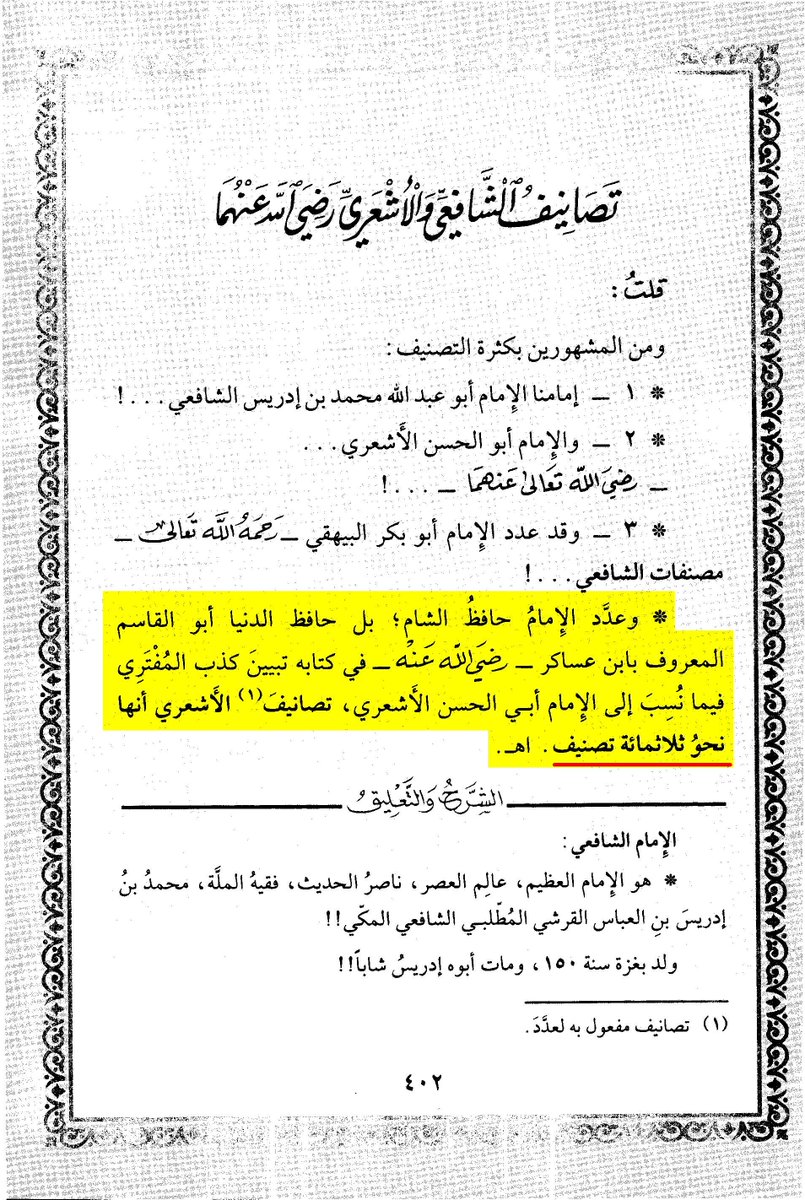 تَصَانِيفُ ٱلشَّافِعِيِّ وَالْأَشْعَرِيِّ رَضِيَ ٱللَّهُ عَنْهُمَا
قلتُ :
ومن المشهورين بكثرة التصنيف :
* ١ ــ إمامنا الإِمام أبو عبد الله محمد بن إدريس الشافعي . . . !
* ٢ ــ والإِمام أبو الحسن الأَشعري . . .
ــ رضيَ اللّه تعَالىٰ عَنهمَا ــ . . . !
* ٣ ــ وقد عدد الإِمام أبو بكر البيهقي ــ رَحمَهُ اللَّه تَعَالىٰ ــ
مصنفات الشافعي . . . !
* وعدَّد الإِمامُ حافظُ الشام؛ بل حافظ الدنيا أبو القاسم
المعروف بابن عساكر ــ رضيَ اللّه عَنْه ــ في كتابه تبيينَ كذب المُفْتَرِي
فيما نُسِبَ إلى الإِمام أبـي الحسن الأَشعري، تصانيفَ(١) الأَشعري أنها
نحوُ ثلاثمائة تصنيف . اهـ .
الشَّرْحُ وَالتَّعْلِيقُ
الإِمام الشافعي :
* هو الإِمام العظيم، عالِم العصر، ناصرُ الحديث، فقيهُ الملَّة، محمدُ بنُ
إدريسَ بنِ العباس القرشي المُطّلبـي الشافعي المكّي !!
ولد بغزة سنة ١٥٠، ومات أبوه إدريسُ شاباً !!
(١) تصانيف مفعول به لعدَّدَ .
٤٠٢